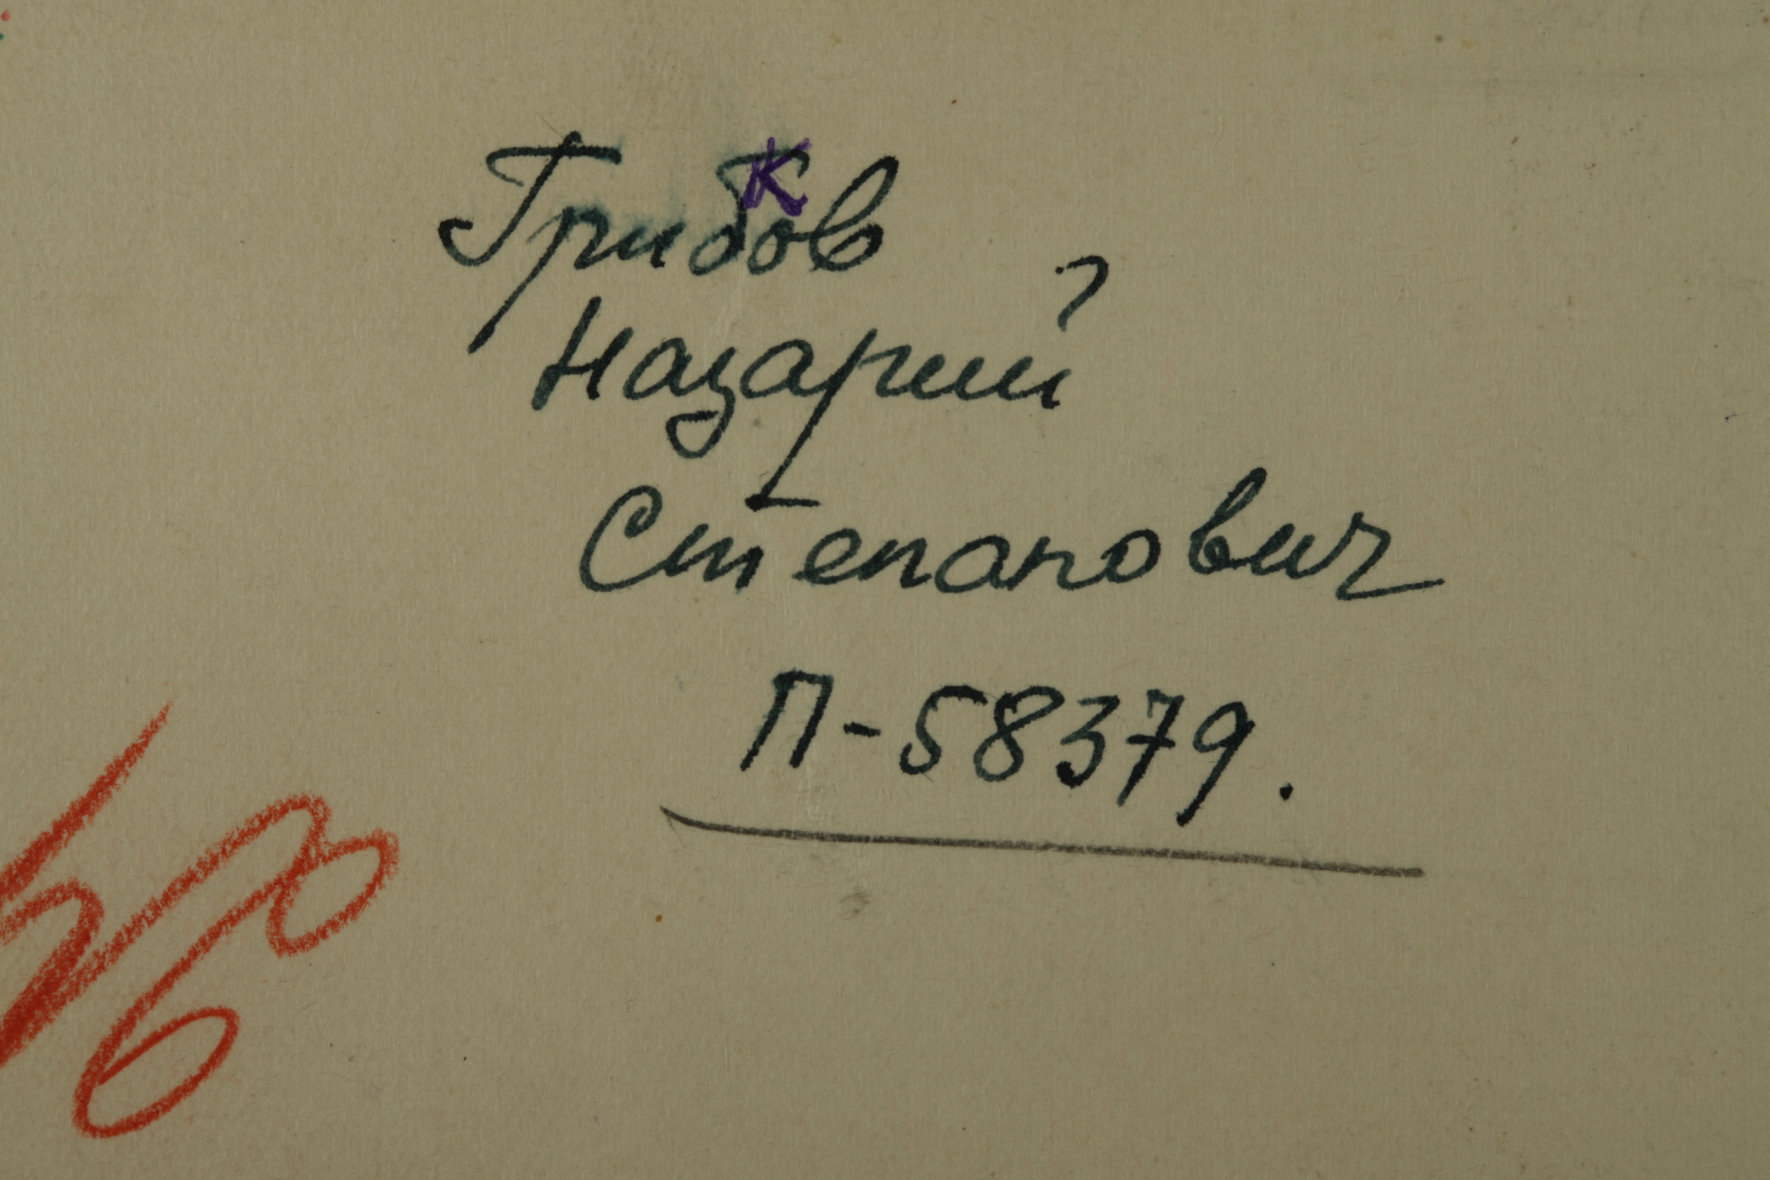 Грибков
Назарий
Степанович
П-58379.